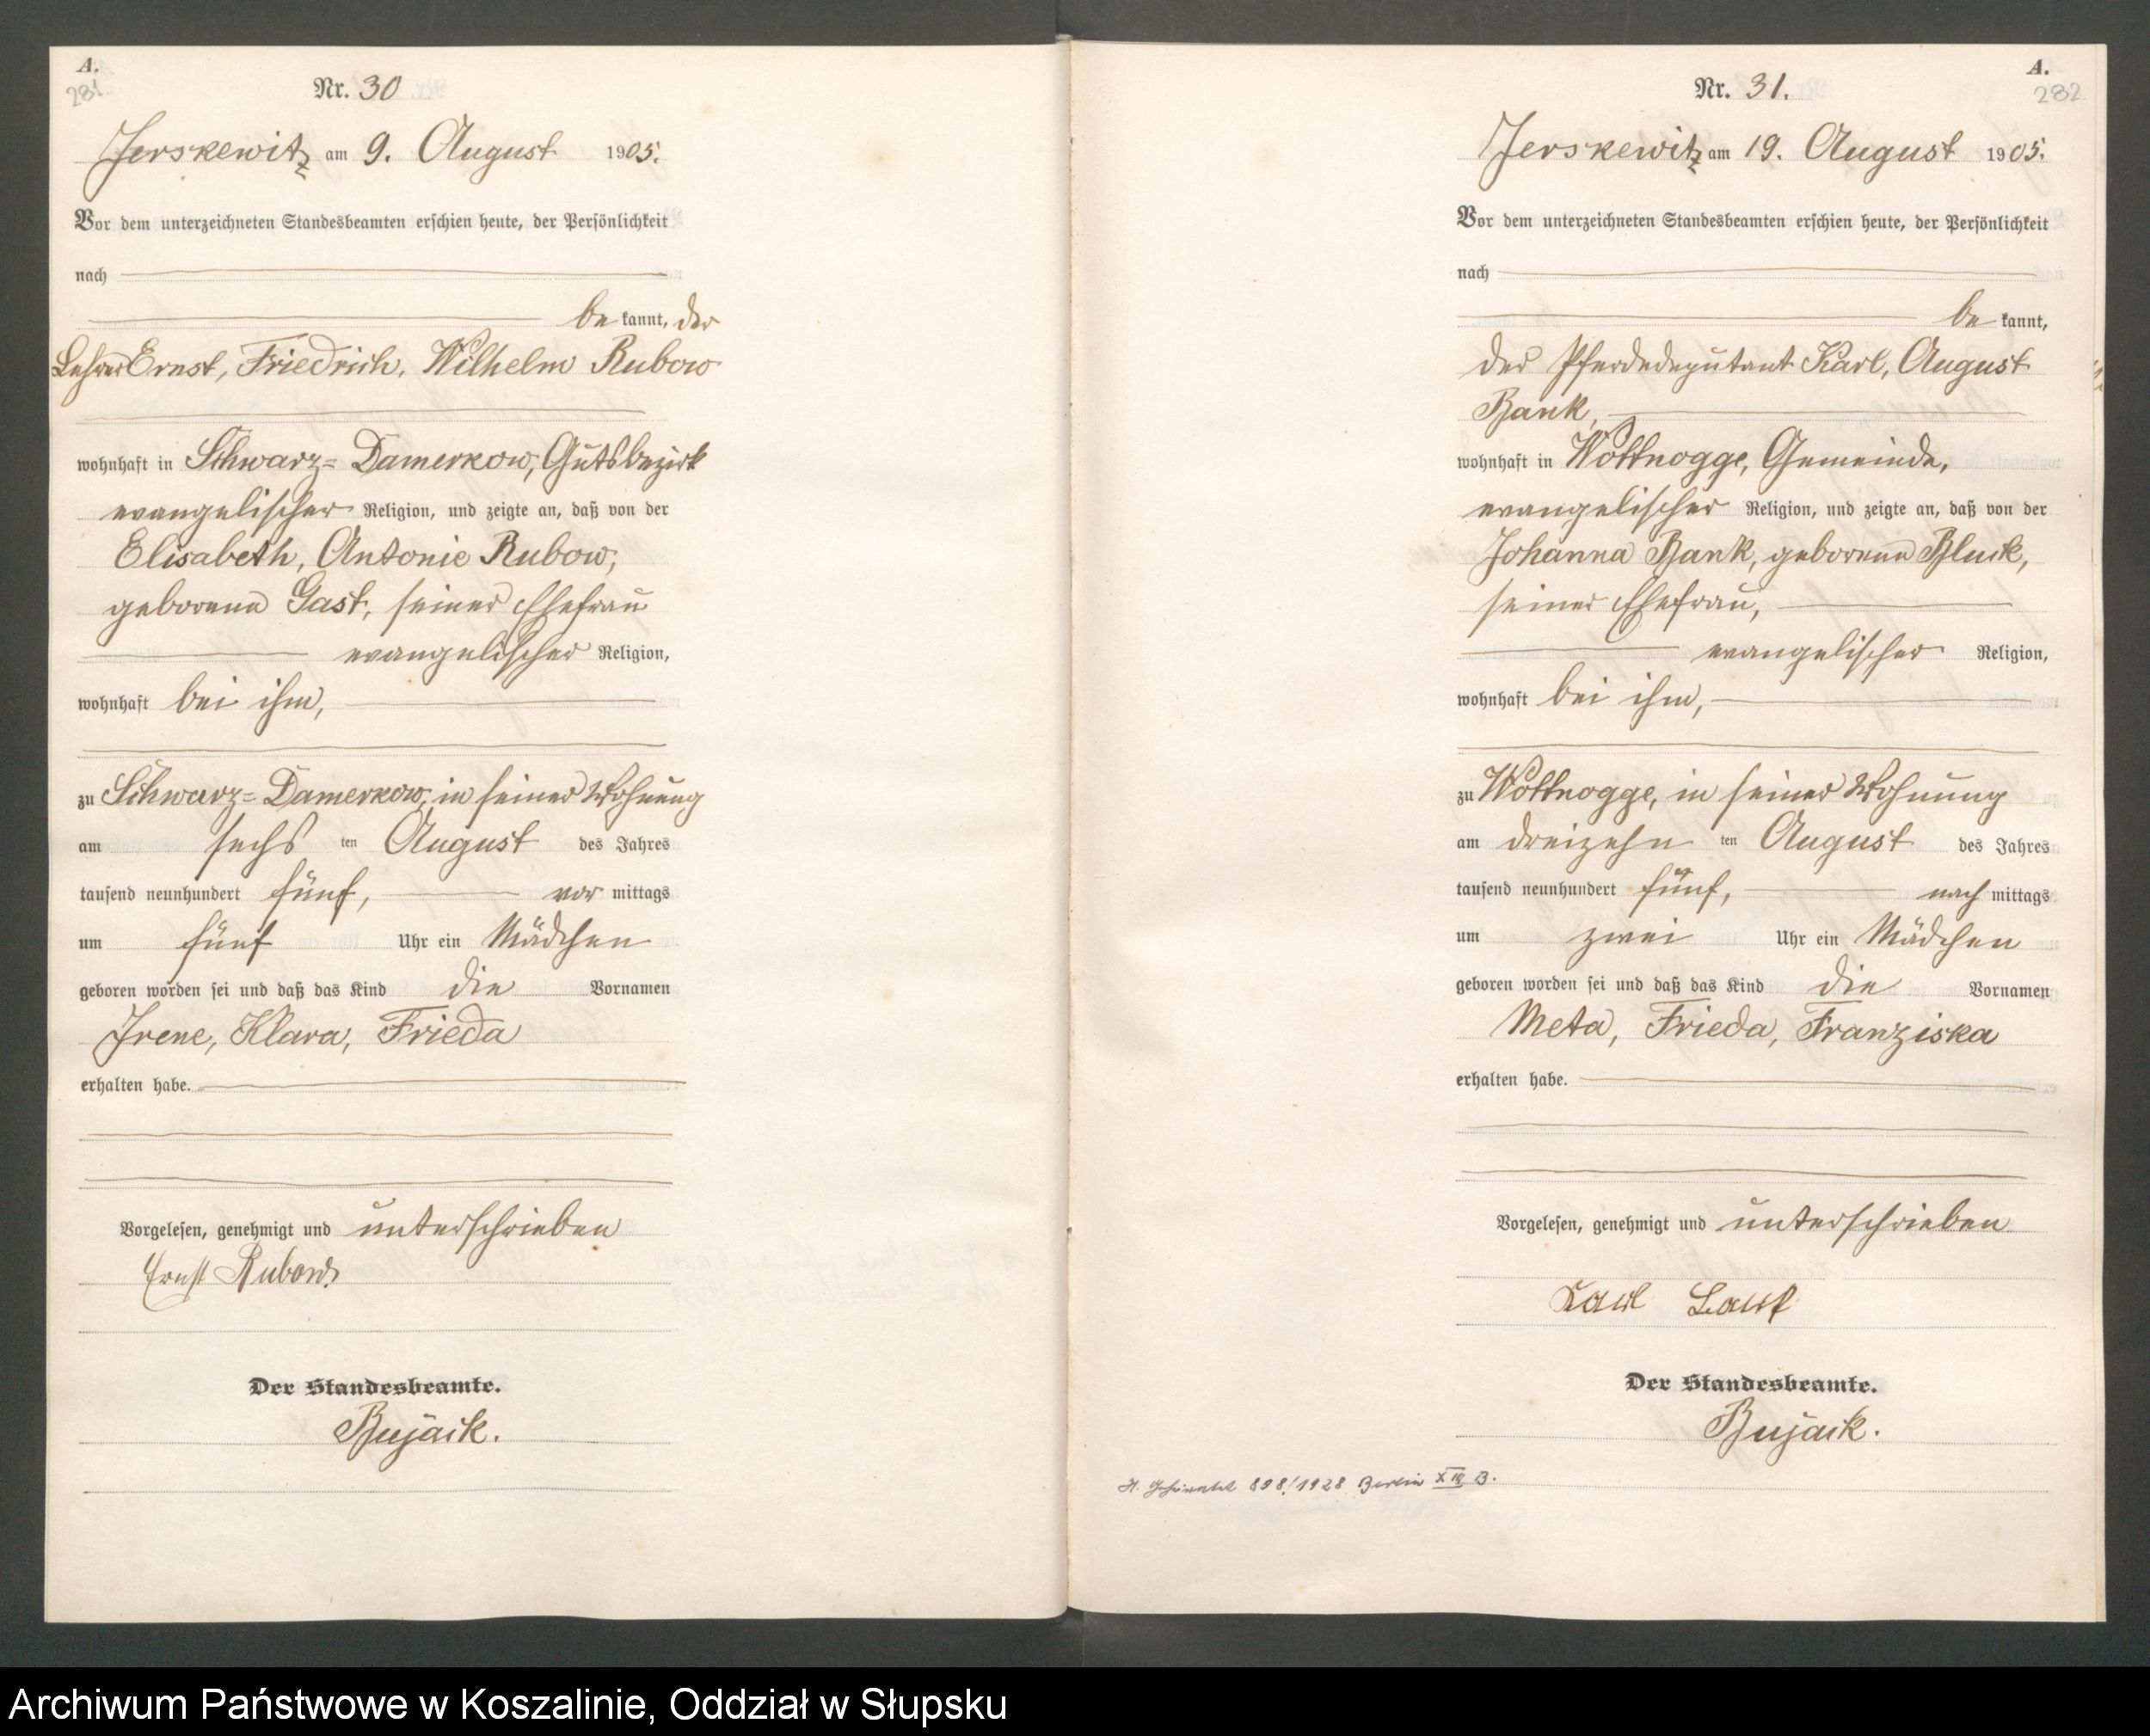 A.
281
Nr. 30
Jerskewitz am 9. August 1905.
Vor dem unterzeichneten Standesbeamten erschien heute, der Persönlichkeit
nach
be kannt, der
Lehrer Ernst, Friedrich, Wilhelm Rubow
wohnhaft in Schwarz=Damerkow, Gutsbezirk
evangelischer Religion, und zeigte an, daß von der
Elisabeth, Antonie Rubow,
geborene Gast, seiner Ehefrau
evangelischer Religion,
wohnhaft bei ihm,
zu Schwarz=Damerkow, in seiner Wohnung
am sechs ten August des Jahres
tausend neunhundert fünf, vor mittags
um fünf Uhr ein Mädchen
geboren worden sei und daß das Kind die Vornamen
Irene, Klara, Frieda
erhalten habe.
Vorgelesen, genehmigt und unterschrieben
Ernst Rubow
Der Standesbeamte.
Bujack.
A.
282
Nr. 31.
Jerskewitz am 19. August 1905.
Vor dem unterzeichneten Standesbeamten erschien heute, der Persönlichkeit
nach
be kannt,
der Pferdedeputant Karl, August
Bank,
wohnhaft in Wottnogge, Gemeinde,
evangelischer Religion, und zeigte an, daß von der
Johanna Bank, geborene Bluck,
seiner Ehefrau,
evangelischer Religion,
wohnhaft bei ihm,
zu Wottnogge, in seiner Wohnung
am dreizehn ten August des Jahres
tausend neunhundert fünf, nach mittags
um zwei Uhr ein Mädchen
geboren worden sei und daß das Kind die Vornamen
Meta, Frieda, Franziska
erhalten habe.
Vorgelesen, genehmigt und unterschrieben
Karl
Der Standesbeamte.
Bujack.
H. 898/1928 Berlin B.
Archiwum Państwowe w Koszalinie, Oddział w Słupsku